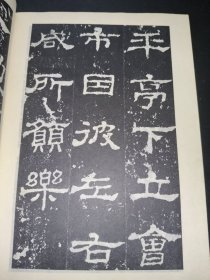 平亭下立會
市因彼左右
咸所願樂